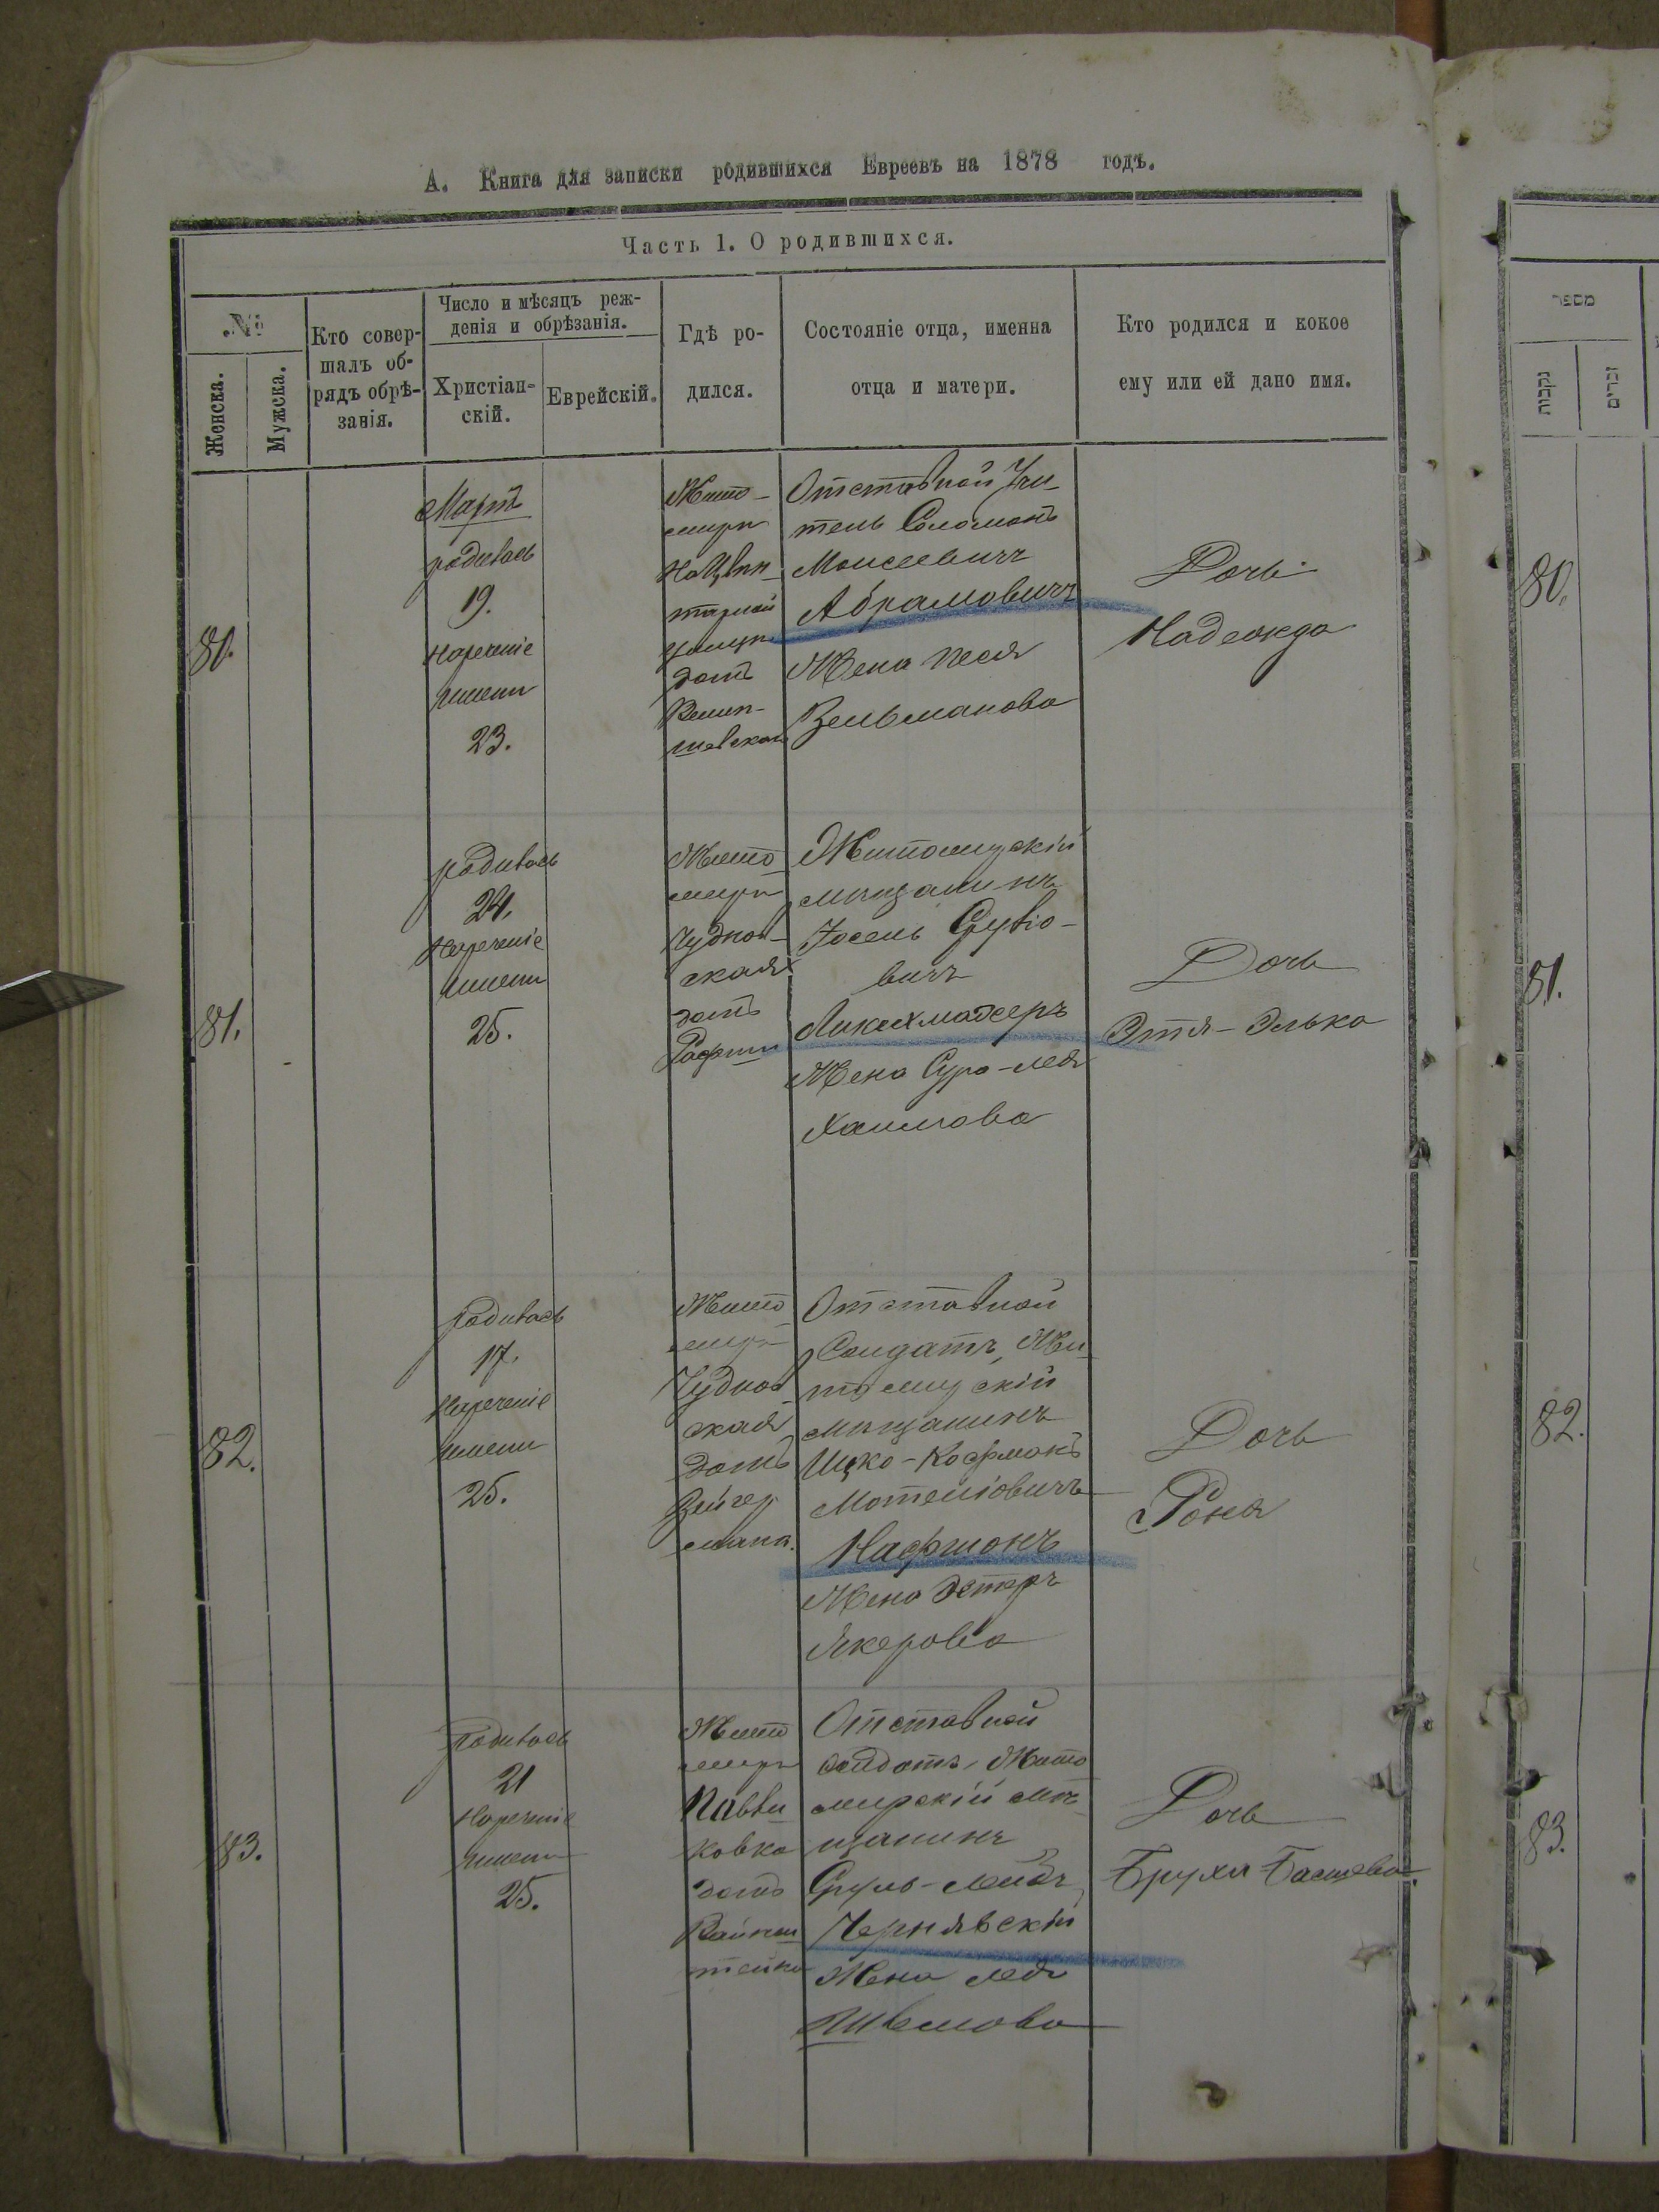 А. Книга для записки родившихся Евреевъ на 1878 годъ.
Часть 1. О родившихся.
№
Женска.
Мужска.
Кто совер-
шалъ об-
рядъ обрѣ-
занія.
Число и мѣсяцъ реж-
денія и обрѣзанія.
Христіан-
скій.
Еврейскій.
Гдѣ ро-
дился.
Состояніе отца, именна
отца и матери.
Кто родился и кокое
ему или ей дано имя.
80.
Мартъ
родилась
19.
Нареченіе
имени
23.
Жито-
миръ
домъ
Отставной Учи-
тель Соломонъ
Моисеевичъ
Абрамовичъ
Жена Песя
Зельманова
Дочь
Надежда
81.
родилась
24.
Нареченіе
имени
25.
Жито-
миръ
Чуднов-
ская
домъ
Житомирскій
мѣщанинъ
Іосель
вичъ
Жена Сура-Лея
Хаимова
Дочь
Этя-Элька
82.
родилась
17.
Нареченіе
имени
25.
Жито-
миръ
Чуднов-
ская
домъ
Зейгер
мана.
Отставной
Солдатъ, Жи-
томирскій
мѣщанинъ
Ицко-Кофманъ
Мотеліовичъ
Нафшонъ
Жена Эстеръ
Якерова
Дочь
Роня
83.
родилась
21
Нареченіе
имени
25.
Жито
миръ
Павли-
ковка
домъ
Вайнш
тейна
Отставной
солдатъ, Жито
мирскій мѣ-
щанинъ
Сруль-Лейбъ
Чернявскій
Жена Лея
Дочь
Брухя Башева.
מספר
נקבות
זכרים
80.
81.
82.
83.